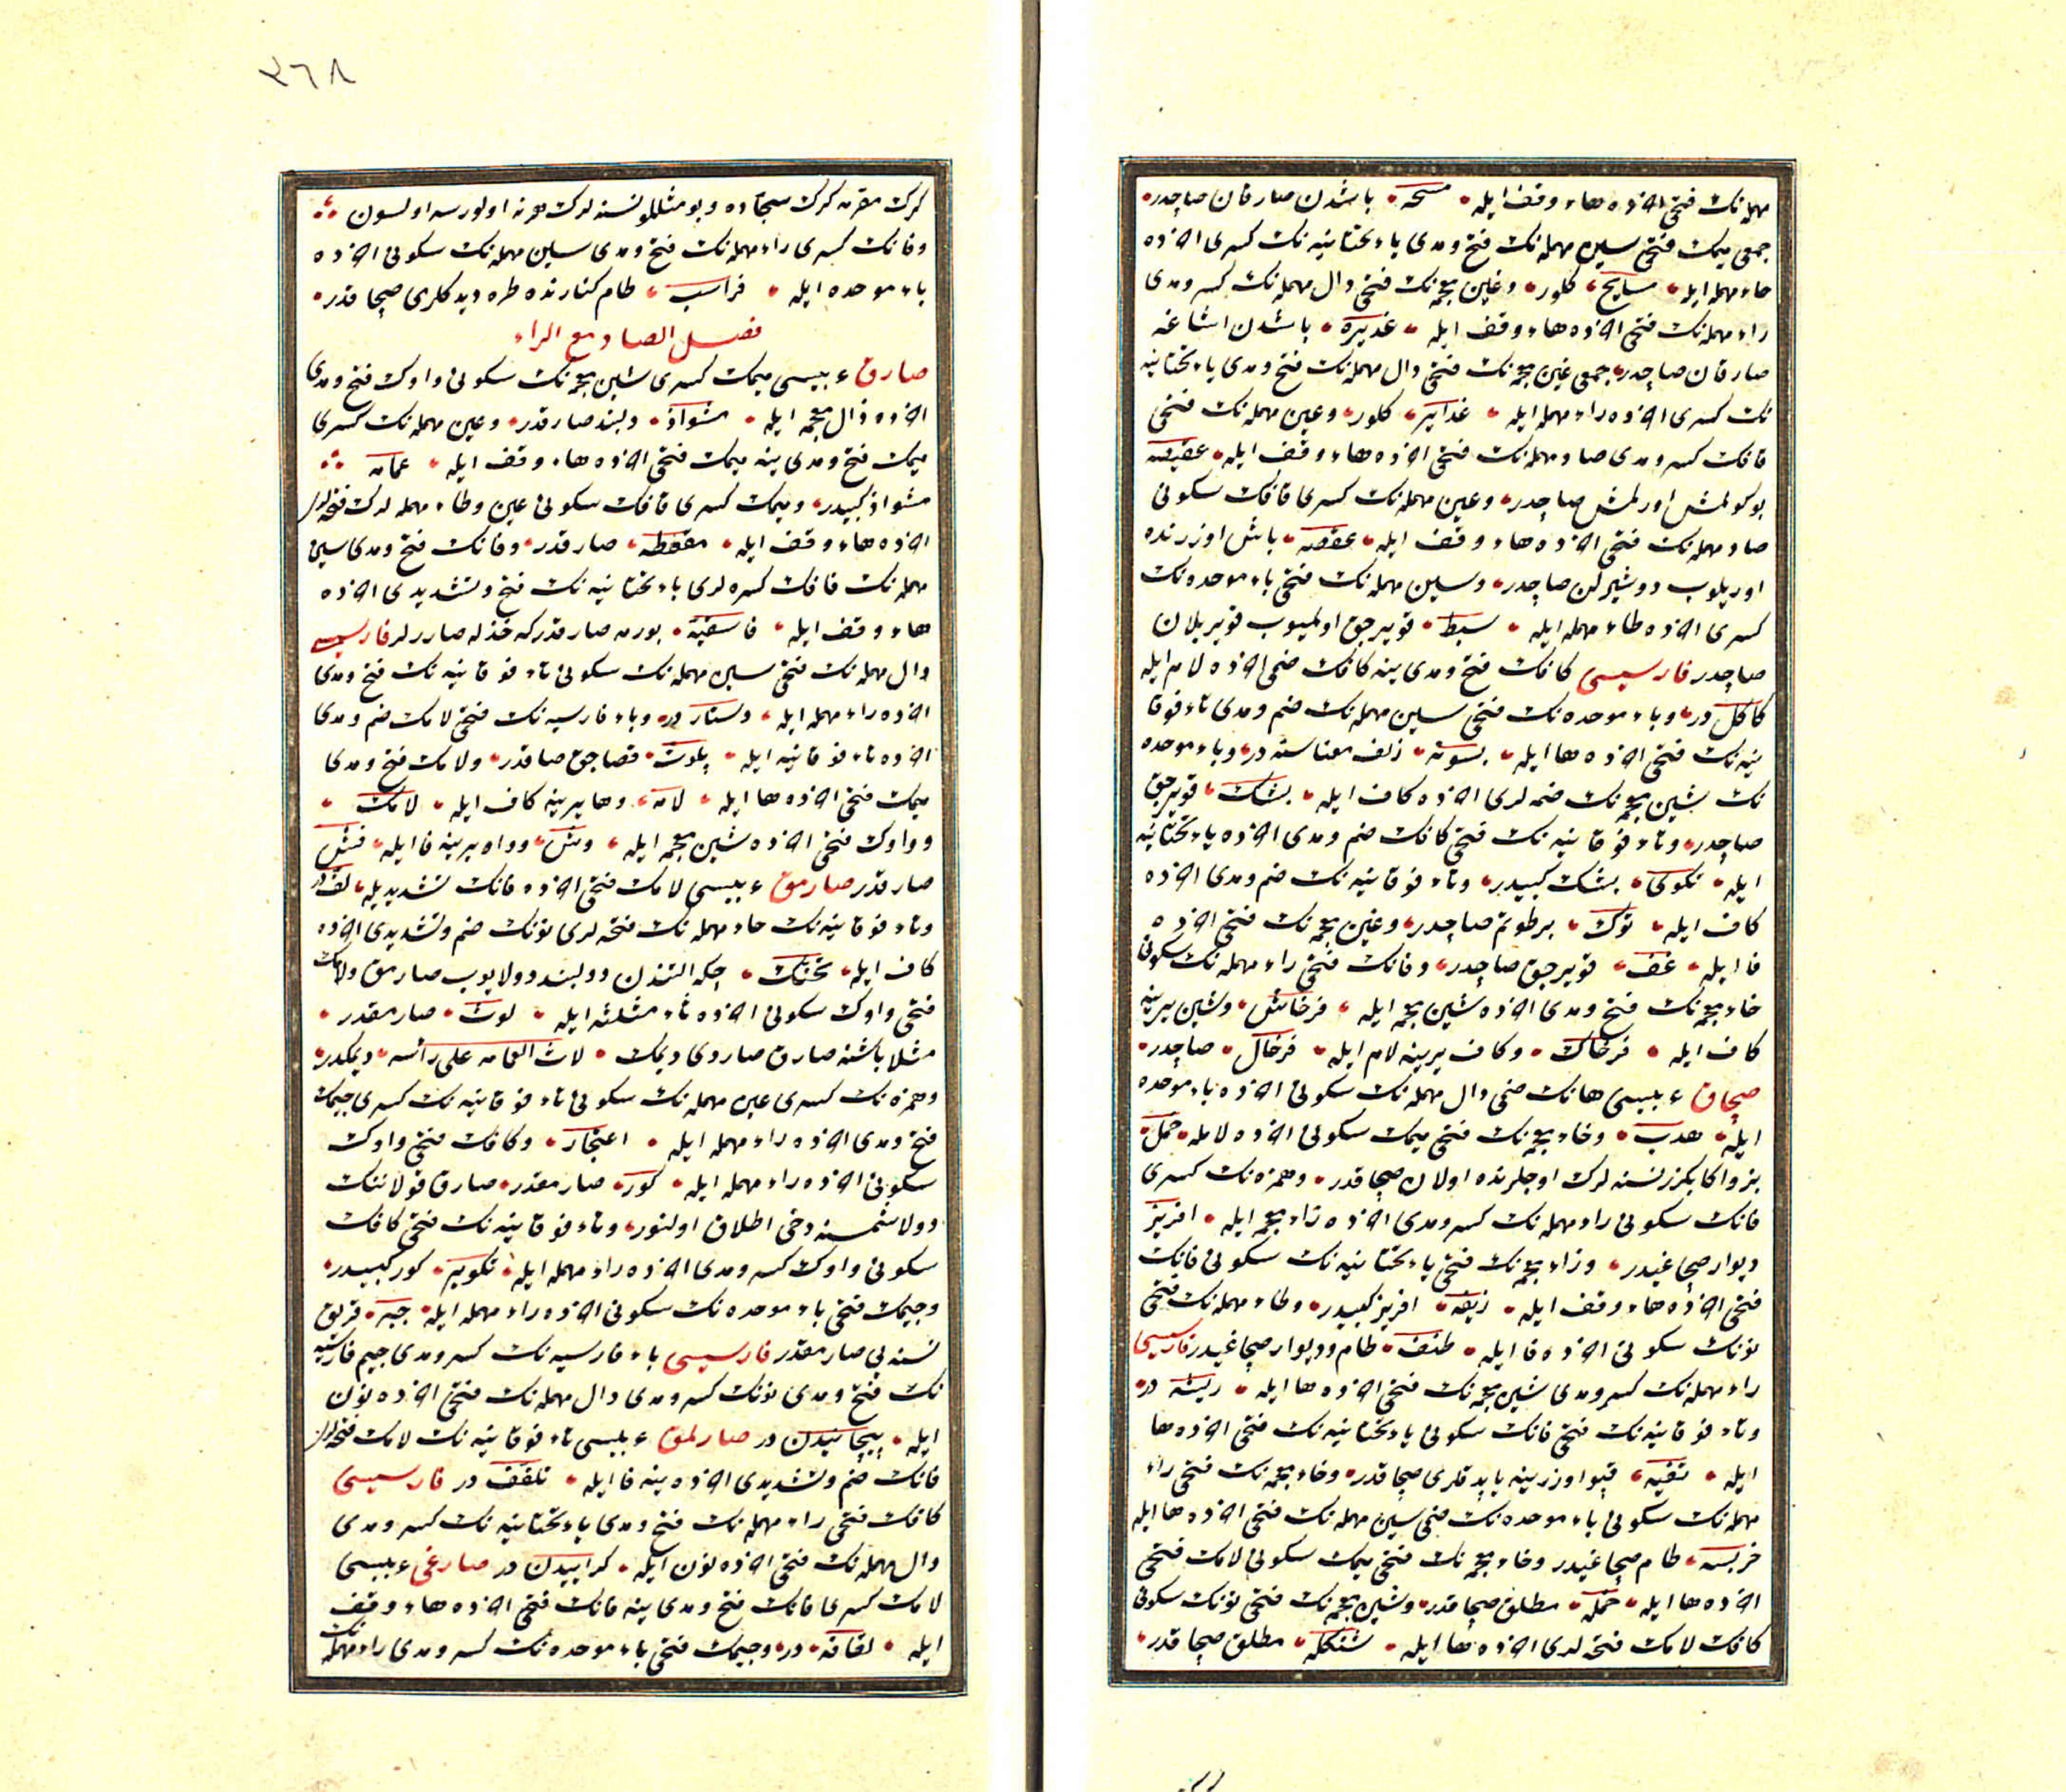 مهمله‌نك فتحى اخرده هاء وقف ايله مسحه باشدن صارقان صاچدر
جمعى ميمك فتحى سين مهمله‌نك فتح ومدى ياء تحتانيه‌نك كسرى اخرده
حاء مهمله ايله مسايح كلور وغين معجمه‌نك فتحى دال مهمله‌نك كسر ومدى
راء مهمله‌نك فتحى اخرده هاء وقف ايله غديره باشدن اشاغه
صارقان صاچدر جمعى غين معجمه‌نك فتحى دال مهمله‌نك فتح ومدى ياء تحتانيه
نك كسرى اخرده راء مهمله ايله غداير كلور وعين مهمله‌نك فتحى
قافك كسر ومدى صاد مهمله‌نك فتحى اخرده هاء وقف ايله عقيصه
بوكولمش اورلمش صاچدر وعين مهمله‌نك كسرى قافك سكونى
صاد مهمله‌نك فتحى اخرده هاء وقف ايله عقصه باش اوزرنده
اوريلوب دوشيرلن صاچدر وسين مهمله‌نك فتحى باء موحده‌نك
كسرى اخرده طاء مهمله ايله سبط قويرجق اولميوب قويريلان
صاچدر فارسيسى كافك فتح ومدى ينه كافك ضمى اخرده لام ايله
كاكل در وباء موحده‌نك فتحى سين مهمله‌نك ضم ومدى تاء فوقا
نيه‌نك فتحى اخرده ها ايله بسوته زلف معناسنه در وباء موحده
نك شين معجمه‌نك ضمه لرى اخرده كاف ايله بشك قويرجق
صاچدر وتاء فوقانيه‌نك فتحى كافك ضم ومدى اخرده ياء تحتانيه
ايله تكوى بشك كبيدر وتاء فوقانيه‌نك ضم ومدى اخرده
كاف ايله توك بر طوتم صاچدر وغين معجمه‌نك فتحى اخرده
فا ايله غف قويرجق صاچدر وفانك فتحى راء مهمله‌نك سكونى
خاء معجمه‌نك فتح ومدى اخرده شين معجمه ايله فرخاش وشين يرينه
كاف ايله فرخاك وكاف يرينه لام ايله فرخال صاچدر
صچاق عربيسى هانك ضمى دال مهمله‌نك سكونى اخرده باء موحده
ايله هدب وخاء معجمه‌نك فتحى ميمك سكونى اخرده لامله خمل
بز واكا بكزر نسنه لرك اوجلرنده اولان صچاقدر وهمزه‌نك كسرى
فانك سكونى راء مهمله‌نك كسر ومدى اخرده زاء معجمه ايله افريز
ديوار صچاغيدر وزاء معجمه‌نك فتحى ياء تحتانيه‌نك سكونى فانك
فتحى اخرده هاء وقف ايله زيفه افريز كبيدر وطاء مهمله‌نك فتحى
نونك سكونى اخرده فا ايله طنف طام وديوار صچاغيدر فارسيسى
راء مهمله‌نك كسر ومدى شين معجمه‌نك فتحى اخرده ها ايله ريشه در
وتاء فوقانيه‌نك فتحى فانك سكونى ياء تحتانيه‌نك فتحى اخرده ها
ايله تفيه قپو اوزرينه ياپدقلرى صچاقدر وخاء معجمه‌نك فتحى راء
مهمله‌نك سكونى باء موحده‌نك ضمى سين مهمله‌نك فتحى اخرده ها ايله
خربسه طام صچاغيدر وخاء معجمه‌نك فتحى ميمك سكونى لامك فتحى
اخرده ها ايله خمله مطلق صچاقدر وشين معجمه‌نك فتحى نونك سكونى
كافك لامك فتحه لرى اخرده ها ايله شنكله مطلق صچاقدر
٣٦٨
كرك مقرمه كرك سجاده وبو مثللو نسنه لرك هر نه اولورسه اولسون
وفانك كسرى راء مهمله‌نك فتح ومدى سين مهمله‌نك سكونى اخرده
باء موحده ايله فراسب طام كنارنده طره ديدكلرى صچاقدر
فصل الصاد مع الراء
صارق عربيسى ميمك كسرى شين معجمه‌نك سكونى واوك فتح ومدى
اخرده ذال معجمه ايله مشواذ دلبند صارقدر وعين مهمله‌نك كسرى
ميمك فتح ومدى ينه ميمك فتحى اخرده هاء وقف ايله عمامه
مشواذ كبيدر وميمك كسرى قافك سكونى عين وطاء مهمله لرك فتحه لرى
اخرده هاء وقف ايله مقعطه صارقدر وفانك فتح ومدى سين
مهمله‌نك قافك كسره لرى ياء تحتانيه‌نك فتح وتشديدى اخرده
هاء وقف ايله فاسقيه بورمه صارقدر كه خذله صاررلر فارسيسى
دال مهمله‌نك فتحى سين مهمله‌نك سكونى تاء فوقانيه‌نك فتح ومدى
اخرده راء مهمله ايله دستار در وباء فارسيه‌نك فتحى لامك ضم ومدى
اخرده تاء فوقانيه ايله پلوت قصاجق صارقدر ولامك فتح ومدى
ميمك فتحى اخرده ها ايله لامه وها يرينه كاف ايله لامك
وواوك فتحى اخرده شين معجمه ايله وش وواو يرينه فا ايله فش
صارقدر صارمق عربيسى لامك فتحى اخرده فانك تشديديله لف در
وتاء فوقانيه‌نك حاء مهمله‌نك فتحه لرى نونك ضم وتشديدى اخرده
كاف ايله تحنك چكه التندن دولبند دولايوب صارمق ولامك
فتحى واوك سكونى اخرده ثاء مثلثه ايله لوث صارمقدر
مثلا باشنه صارق صاردى ديمك لاث العمامه على رأسه ديمكدر
وهمزه‌نك كسرى عين مهمله‌نك سكونى تاء فوقانيه‌نك كسرى جيمك
فتح ومدى اخرده راء مهمله ايله اعتجار وكافك فتحى واوك
سكونى اخرده راء مهمله ايله كور صارمقدر صارق قولاننك
دولاشمسنه دخى اطلاق اولنور وتاء فوقانيه‌نك فتحى كافك
سكونى واوك كسر ومدى اخرده راء مهمله ايله تكوير كور كبيدر
وجيمك فتحى باء موحده‌نك سكونى اخرده راء مهمله ايله جبر قريق
نسنه يى صارمقدر فارسيسى باء فارسيه‌نك كسر ومدى جيم فارسيه
نك فتح ومدى نونك كسر ومدى دال مهمله‌نك فتحى اخرده نون
ايله پيچانيدن در صارلمق عربيسى تاء فوقانيه‌نك لامك فتحه لرى
فانك ضم وتشديدى اخرده ينه فا ايله تلفف در فارسيسى
كافك فتحى راء مهمله‌نك فتح ومدى ياء تحتانيه‌نك كسر ومدى
دال مهمله‌نك فتحى اخرده نون ايله كراييدن در صارغى عربيسى
لامك كسرى فانك فتح ومدى ينه فانك فتحى اخرده هاء وقف
ايله لفافه در وجيمك فتحى باء موحده‌نك كسر ومدى راء مهمله‌نك